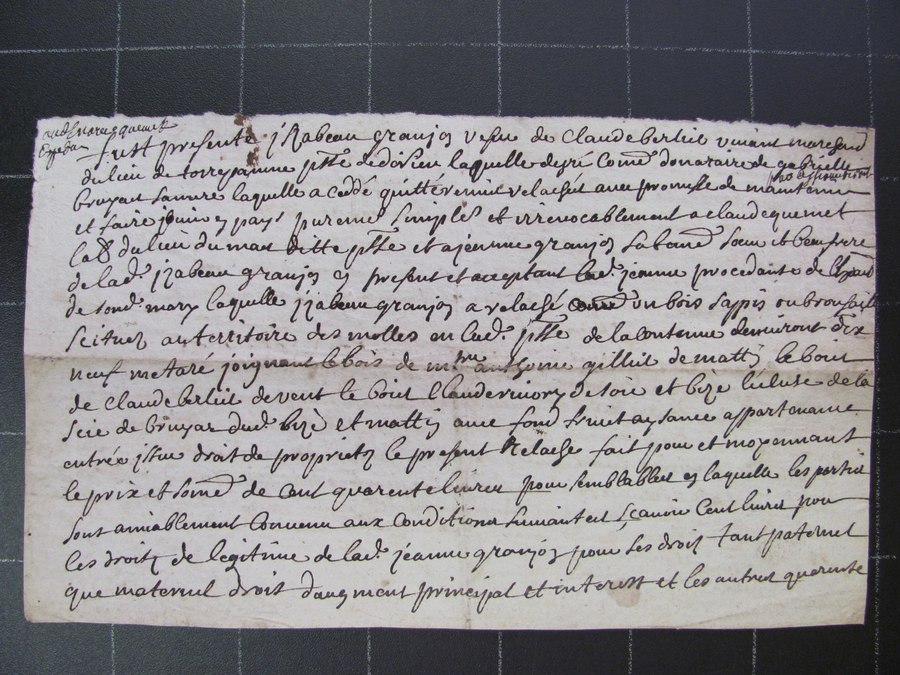 Expedié
fust presente jzabeau granjoy vefve de Claude berliet vivant mareschal
du lieu de torrepanne psse de doisieu laquelle de gre comme donataire de gabrielle
bruyas sa mere laquelle a ceddé quitté remit relaché avec promesse de maintenir
et faire jouir pur et simple et irrevocablement a claude quemet
du lieu du mas ditte psse et a jeanne granjoy sa soeur et beau frere
de lad. jzabeau granjoy present et acceptant lad. jeanne procedante de
de sond. mary laquelle jzabeau granjoy a relaché un bois sapis ou broussaille
scituez au territoire des molles en lad. psse de la contenue denviront dix
neuf metaré joignant le bois de anthoine gilliet de matti le bois
de claude berliet de vent le bois de soir et bize lecluse de la
scie de bruyas dud. bize et matti avec fond fruict aysance appartenance
entrée issue droit de proprieté le present relache fait pour et moyennant
le prix et somme de cent quarente livres pour semblables laquelle les parties
sont amiablement convenu aux conditions suivantes scavoir cent livres pour
les droits de legitime de lad. jeanne granjoy pour ses droits tant paternel
que maternel droit daugment principal et interest et les autres quarente